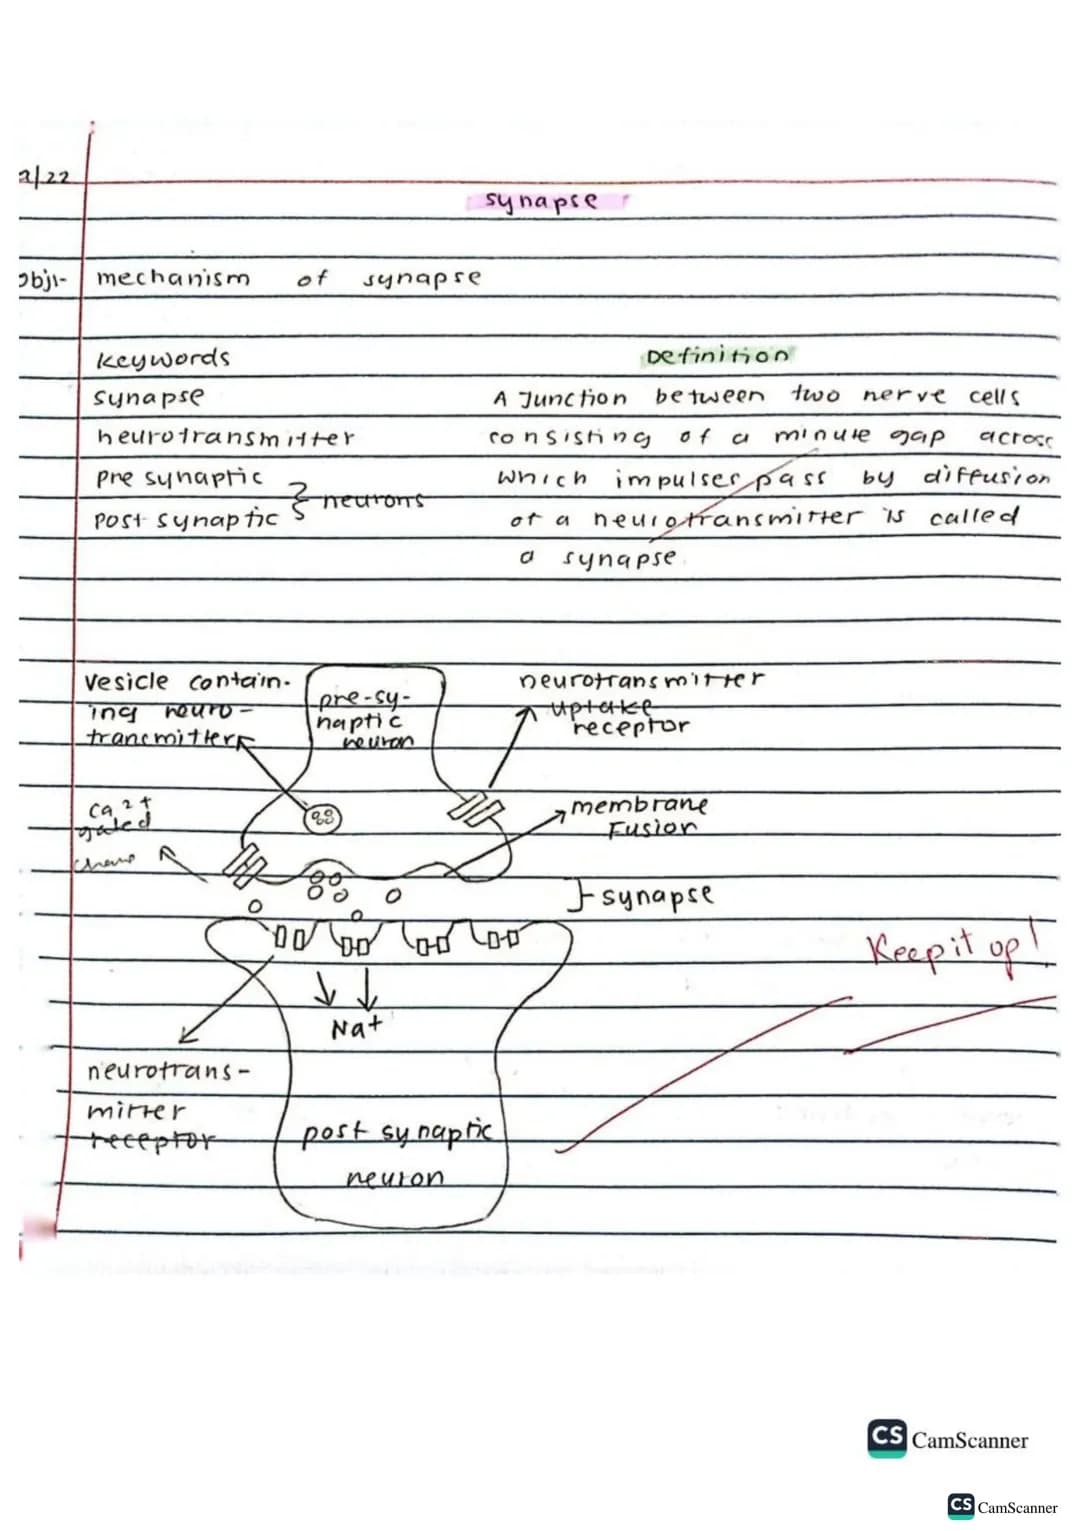 2/22
synapse
Obj1- mechanism of synapse
keywords Definition
synapse A Junction between two nerve cells
neurotransmitter consisting of a minute gap across
Pre synaptic which impulses pass by diffusion
Post synaptic } neurons of a neurotransmitter is called
a synapse.
vesicle contain-
ing neuro-
transmitters
pre-sy-
naptic
neuron
neurotransmitter
uptake
receptor
Ca2+
gated
membrane
Fusion
} synapse
Keep it up!
Na+
neurotrans-
mitter
receptor
post synaptic
neuron
CS CamScanner
CS CamScanner